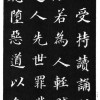 受持讀誦
若為人輕
人先世罪
墮惡道以